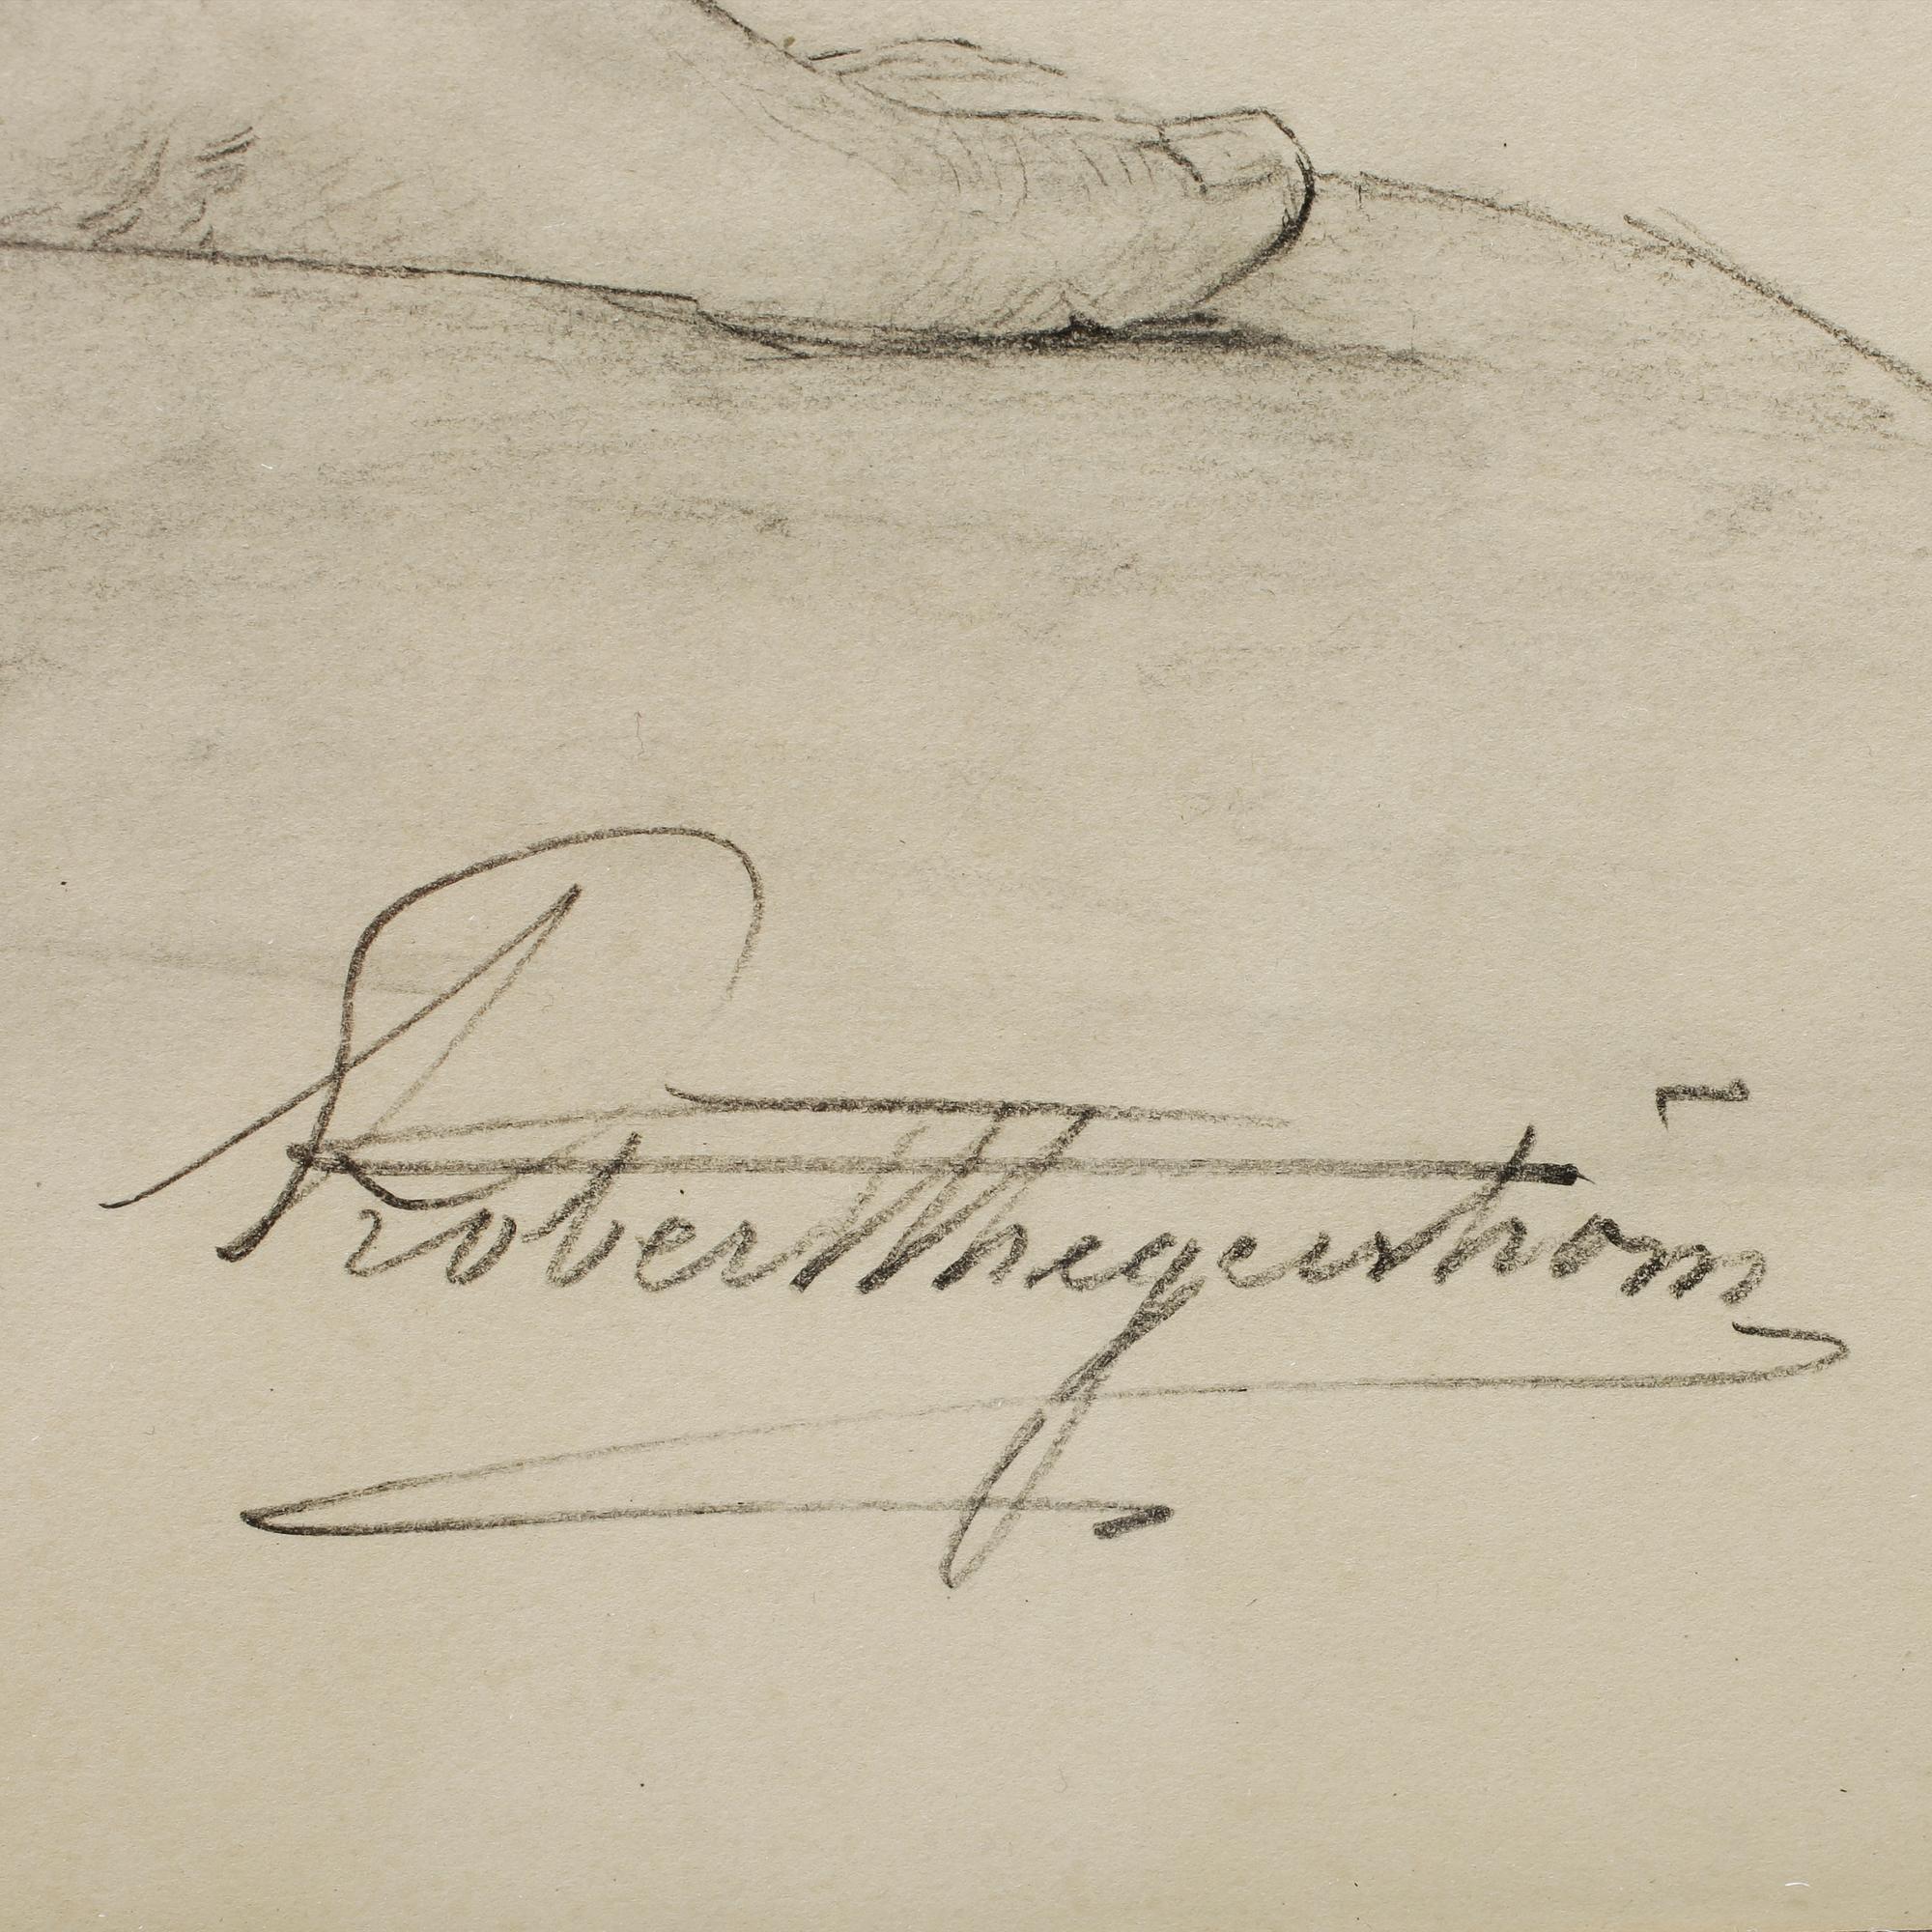 Robert Thegerström